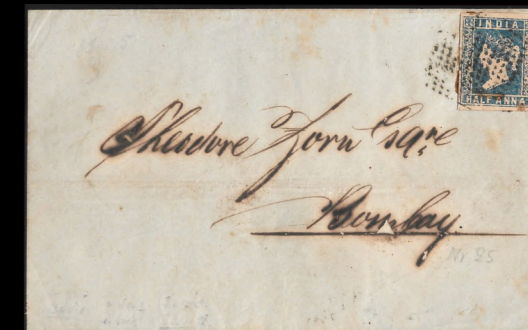 INDIA
HALF ANNA
Theodore Zorn Esqre
Bombay.
Nr 25